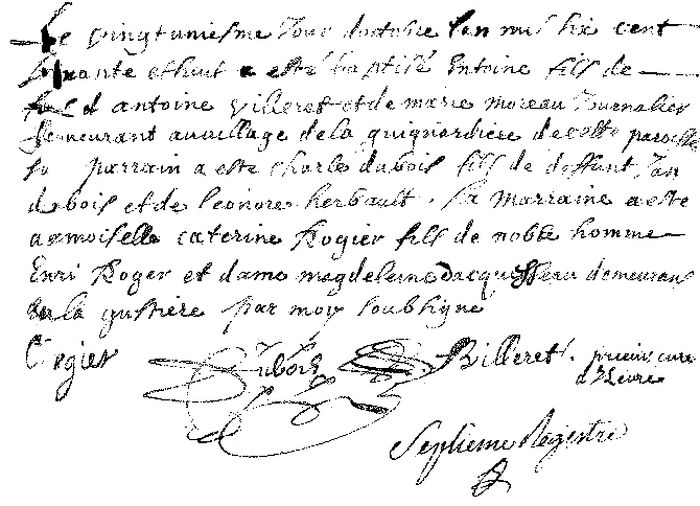 Le vingtuniesme Jour doctobre lan mil six cent
soixante et huit a esté baptisé Entoine fils de
fils d antoine villeret et de marie moreau Journalier
demeurant au village de la guignardiere de cette paroisse
so parrain a este charle dubois fils de deffunt Jan
dubois et de leonore herbault . sa marraine a este
damoiselle caterine Rogier fils de noble homme
Enri Roger et dame magdeleine demeurans
En la par moy soubsigné
C Rogier Dubois Billeret . prieur curé
Septieme Regestre